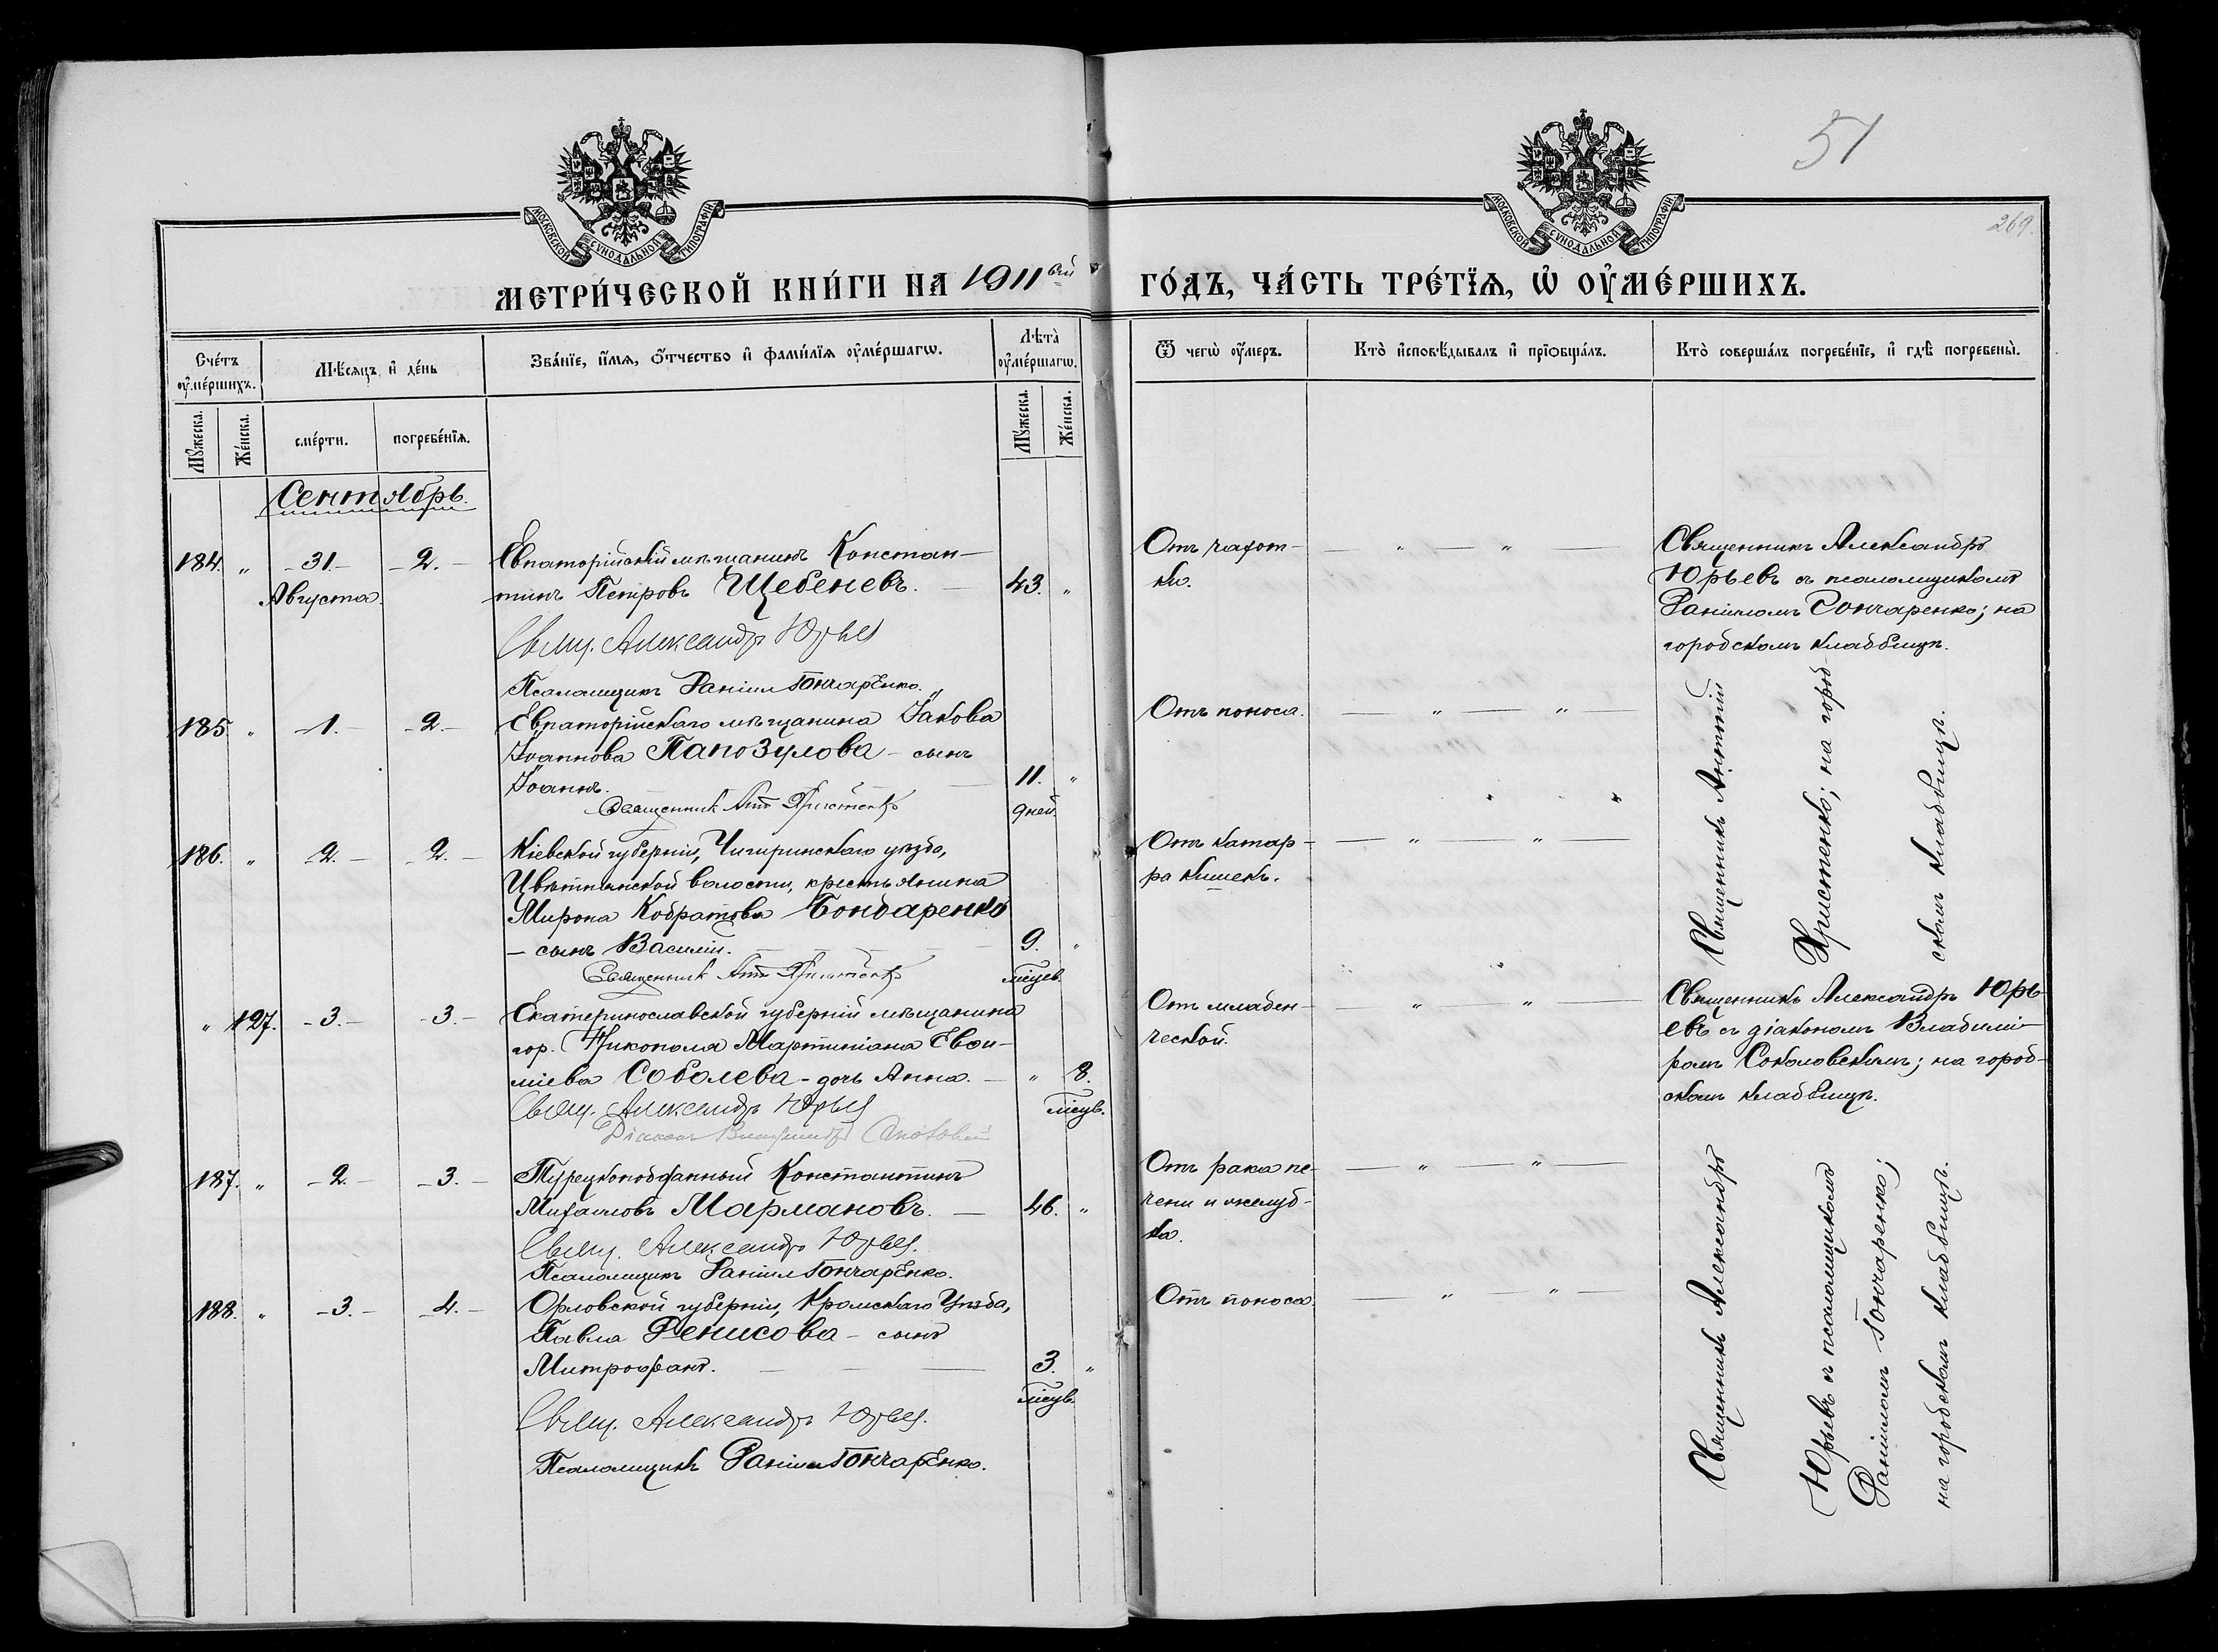 51
269.
МОСКОВСКОЙ СѴНОДАЛЬНОЙ ТИПОГРАФІИ
МОСКОВСКОЙ СѴНОДАЛЬНОЙ ТИПОГРАФІИ
МЕТРИ́ЧЕСКОЙ КНИ́ГИ НА 1911 ГО́ДЪ, ЧА́СТЬ ТРЕ́ТЇѦ, Ѡ҆ ОУ҆МЕ́РШИХЪ.
Сче́тъ оу҆ме́ршихъ.
Мѣ́сяцъ и҆ де́нь
Зва́нїе, и҆́мѧ, ѻ҆́тчество и҆ фами́лїѧ оу҆ме́ршагѡ.
Лѣ́та оу҆ме́ршагѡ.
Ѿ чегѡ̀ оу҆́меръ.
Кто̀ и҆сповѣ́дывалъ и҆ прїѻбща́лъ.
Кто̀ соверша́лъ погребе́нїе, и҆ гдѣ̀ погребены̀.
Мꙋ́жеска.
Же́нска.
сме́рти.
погребе́нїѧ.
Мꙋ́жеска.
Же́нска.
Сентябрь.
184. " -31.- -2.- Евпаторійскій мѣщанинъ Констан-
Августа.
тинъ Петровъ Щебеневъ. — 43. "
Свящ. Александръ Юрьев
Псаломщикъ Даніил Гончаренко.
Отъ чахот-
ки.
— " — " —
Священникъ Александръ
Юрьевъ съ псаломщикомъ
Даніиломъ Гончаренко; на
городскомъ кладбищѣ.
185. " -1.- -2.- Евпаторійскаго мѣщанина Іакова
Іоаннова Папозулова - сынъ
Іоаннъ. 11. "
дней.
Священник Ант Христенко
Отъ поноса.
— " — " —
Священникъ Антоній
Христенко; на город-
скомъ кладбищѣ.
186. " -2.- -2.- Кіевской губерніи, Чигиринскаго уѣзда,
Цвѣтнянской волости, крестьянина
Мирона Кодратова Бондаренко
- сынъ Василій. 9. "
мѣсцев.
Священник Ант Христенко
Отъ катар-
ра кишекъ.
— " — " —
" 127. -3.- -3.- Екатеринославской губерніи мѣщанина
гор. Никополя Мартиніана Евои-
міева Соболева - дочь Анна. — " 8.
мѣсцв.
Свящ. Александръ Юрьев
Діаконъ Владиміръ
Отъ младен-
ческой.
— " — " —
Священникъ Александръ Юрь-
евъ съ діакономъ Владимі-
ромъ Соколовскимъ; на город-
скомъ кладбищѣ.
187. " -2.- -3.- Турецкоподданный Константинъ
Михаиловъ Мармановъ. — 46. "
Свящ. Александръ Юрьев.
Псаломщикъ Даніил Гончаренко.
Отъ рака пе-
чени и желуд-
ка.
— " — " —
Священникъ Александръ
Юрьевъ съ псаломщикомъ
Даніиломъ Гончаренко;
на городскомъ кладбищѣ.
188. " -3.- -4.- Орловской губерніи, Кромскаго Уѣзда,
Павла Денисова - сынъ
Митрофанъ. — 3. "
мѣсцв.
Свящ. Александръ Юрьев.
Псаломщикъ Даніил Гончаренко.
Отъ поноса.
— " — " —